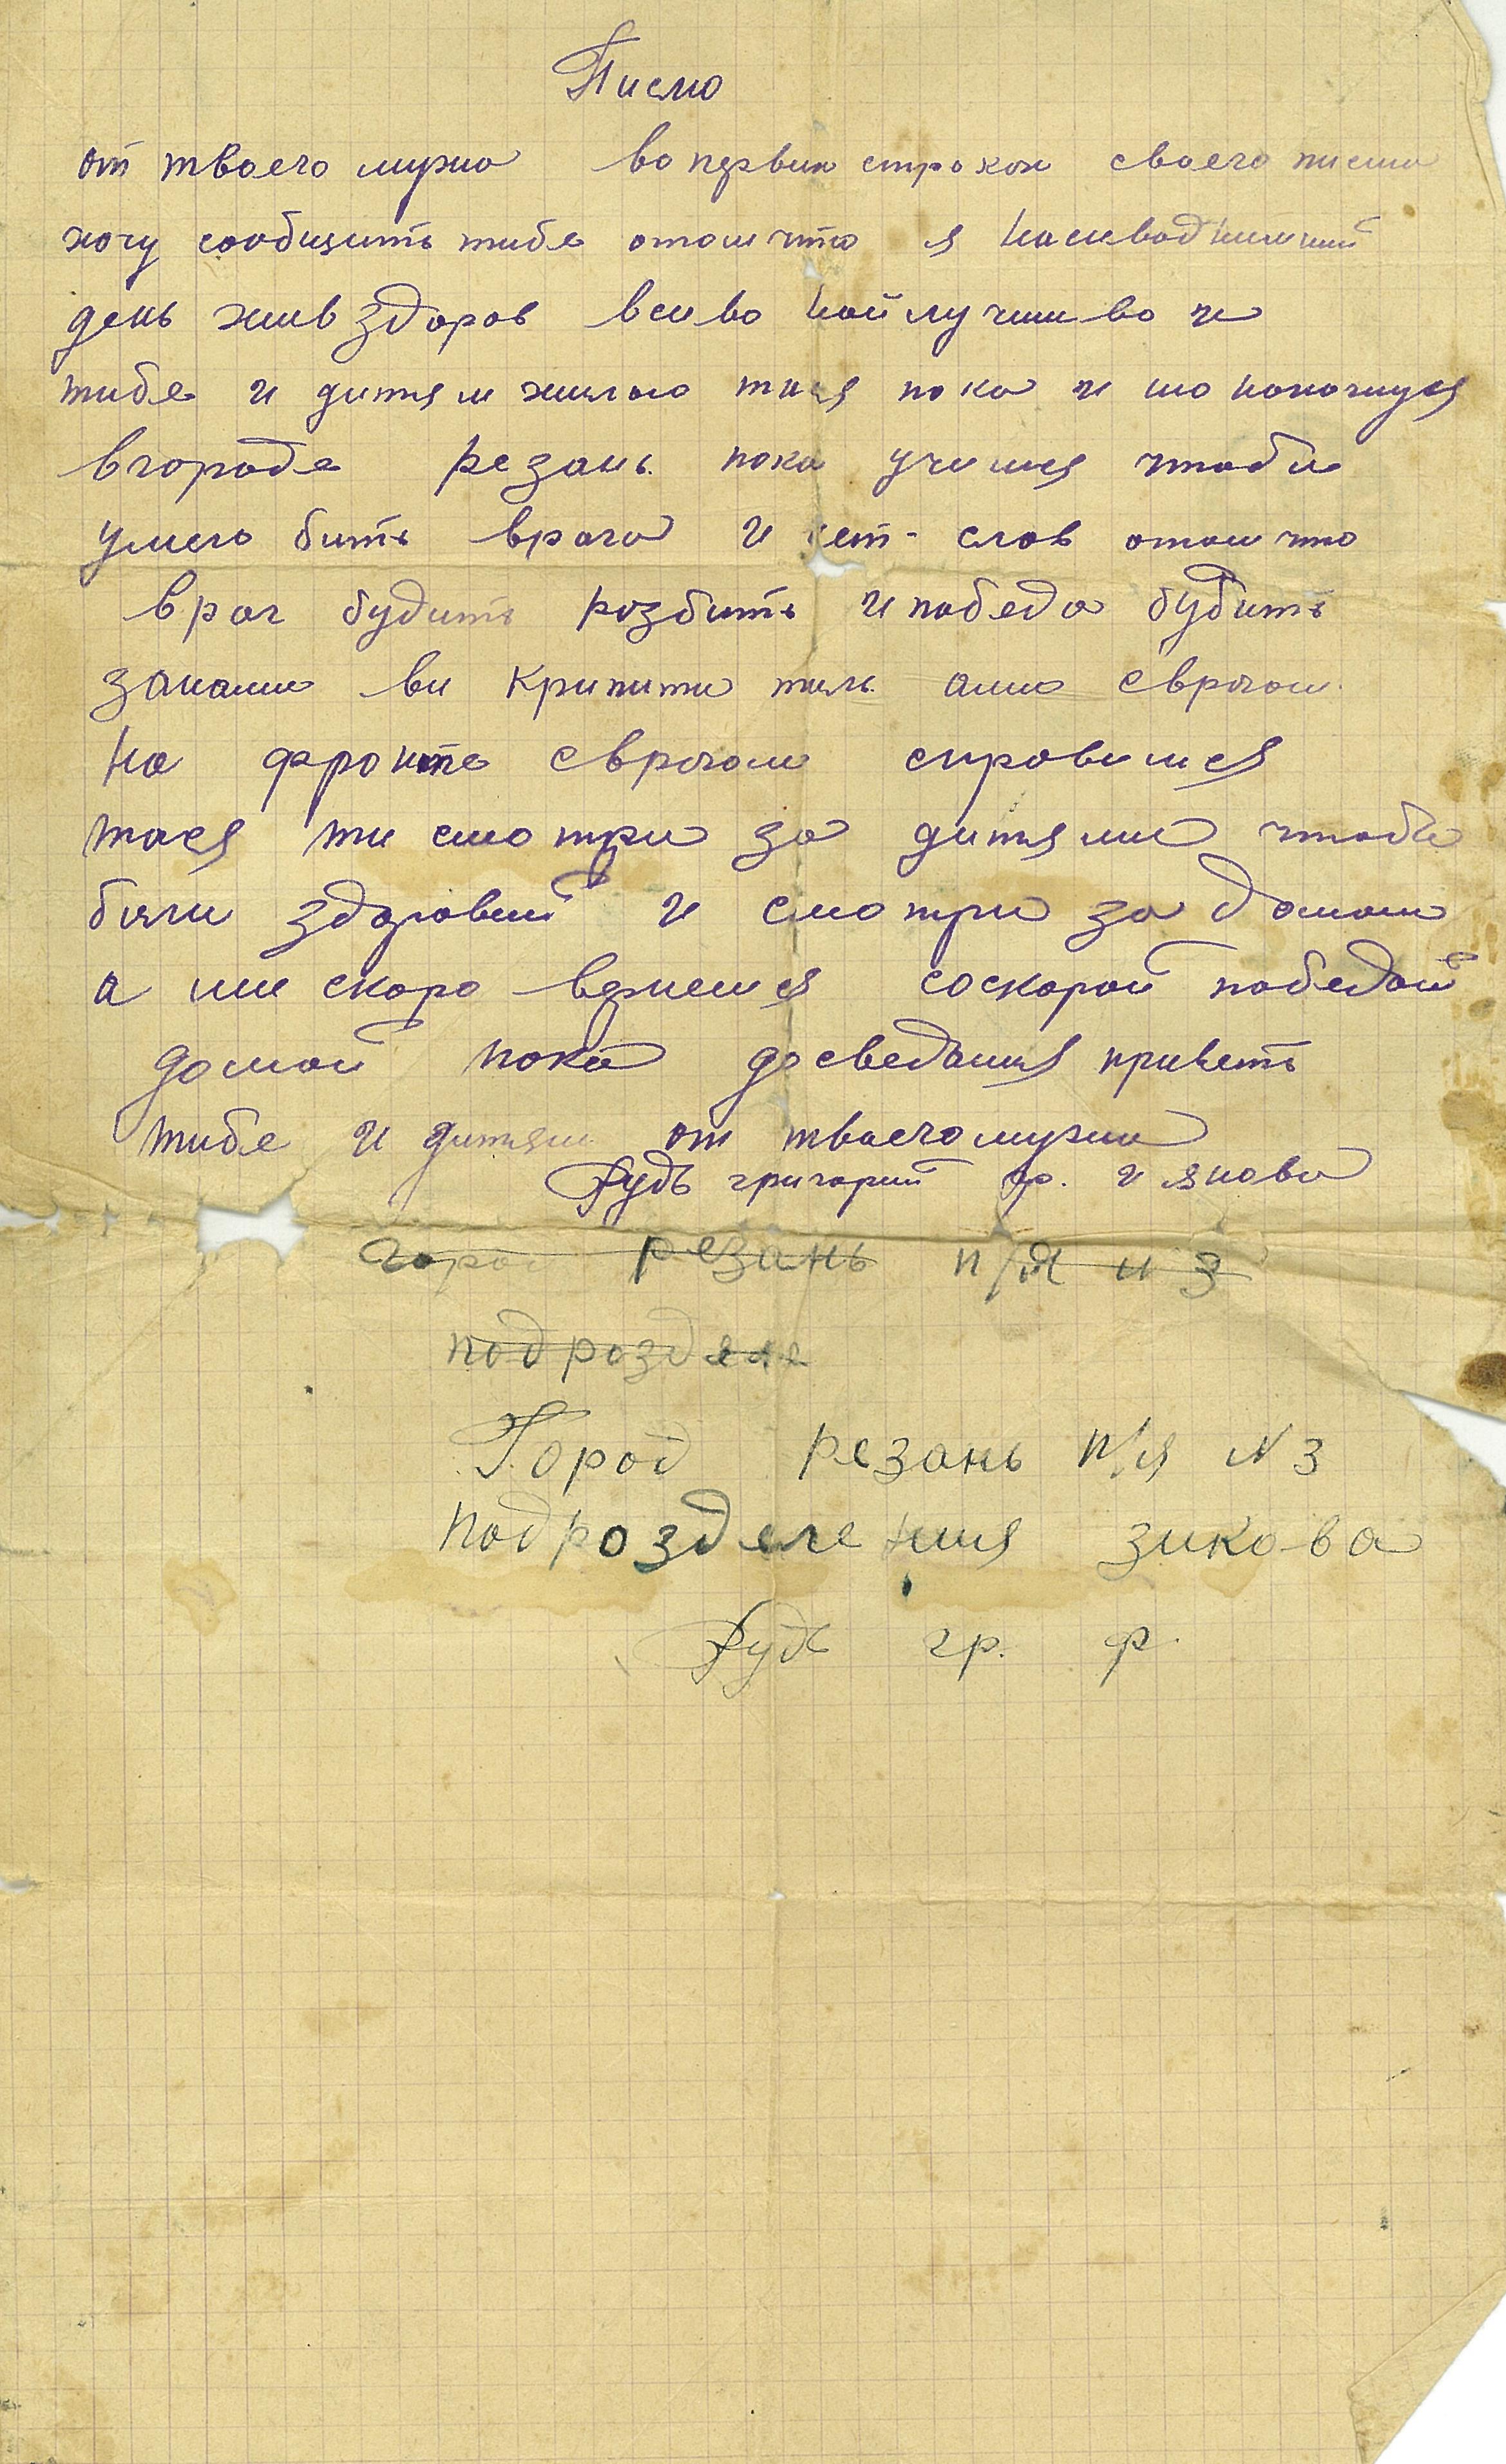 Писмо
от твоего мужа во первих строках своего писма
хочу сообщить тибе отом что я насиводнишний
день жив здоров всиво найлучшиво и
тибе и дитям жилаю тися пока и мо находимся
вгороде резань пока учимся чтоби
умело бить врага и нет слов отом что
враг будить розбить и победа будить
занами ви крипити тиль а ми сврагом
на фронте сврагом справимся
тася ти смотри за дитями чтоби
били здоровий и смотри за домом
а ми скоро вернемся соскорой победой
домой пока досведания приветь
тибе и дитям от твоего мужа
Рудь григорий ф. и якова
город резань п/я н 3
подрозделе
Город резань п/я N 3
подрозделения зикова
Рудь гр. ф.